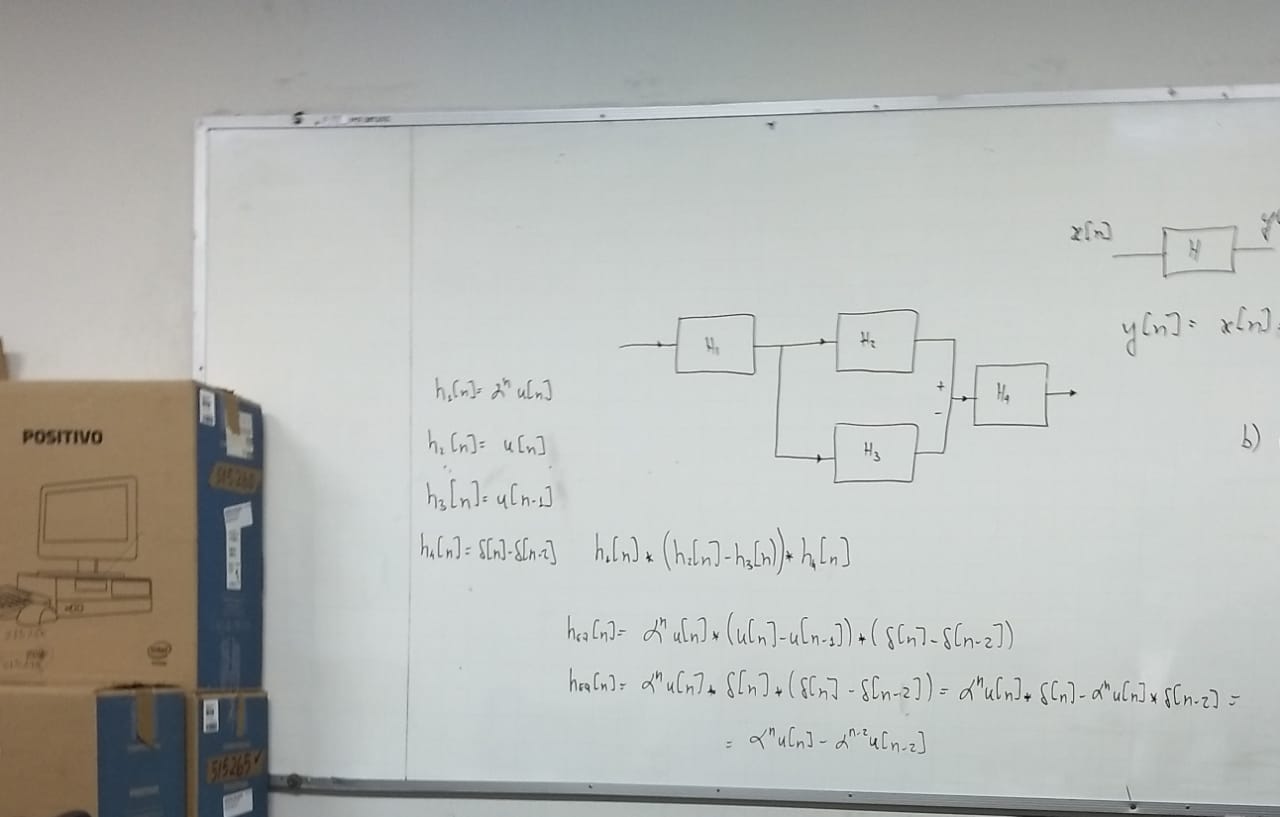 x[n]
H
y[n]= x[n]
H₁
H₂
+
-
H₃
H₄
b)
h₁[n]= αⁿ u[n]
h₂[n]= u[n]
h₃[n]= u[n-1]
h₄[n]= δ[n]-δ[n-2]
h₁[n] * (h₂[n]-h₃[n]) * h₄[n]
heq[n]= αⁿ u[n] * (u[n]-u[n-1]) * (δ[n]-δ[n-2])
heq[n]= αⁿu[n] * δ[n] * (δ[n] - δ[n-2]) = αⁿu[n] * δ[n] - αⁿu[n] * δ[n-2] =
= αⁿu[n] - αⁿ⁻²u[n-2]
POSITIVO
515265